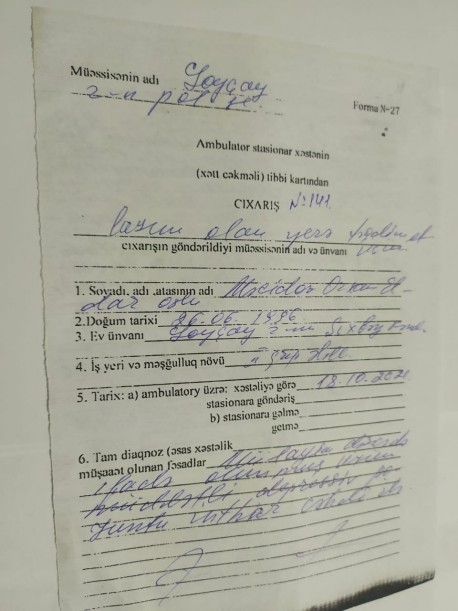 Müəssisənin adı Göyçay
r-n pol
Forma N-27
Ambulator stasionar xəstənin
(xətt cəkməli) tibbi kartından
CIXARIŞ № 141
lazım olan yerə təqdim et
cıxarışın göndərildiyi müəssisənin adı və ünvanı
1. Soyadı, adı ,atasının adı
oğlu
2.Doğum tarixi 26.06.1996
3. Ev ünvanı Göyçay r-n
4. İş yeri və məşğulluq növü II qrup
5. Tarix: a) ambulatory üzrə: xəstəliyə görə 18.10.2021
stasionara göndəriş
b) stasionara gəlmə
getmə
6. Tam diaqnoz (əsas xəstəlik
müşaət olunan fəsadlar
ifadə olunmuş uzun
müddətli depressiv
intihar cəhdi ilə